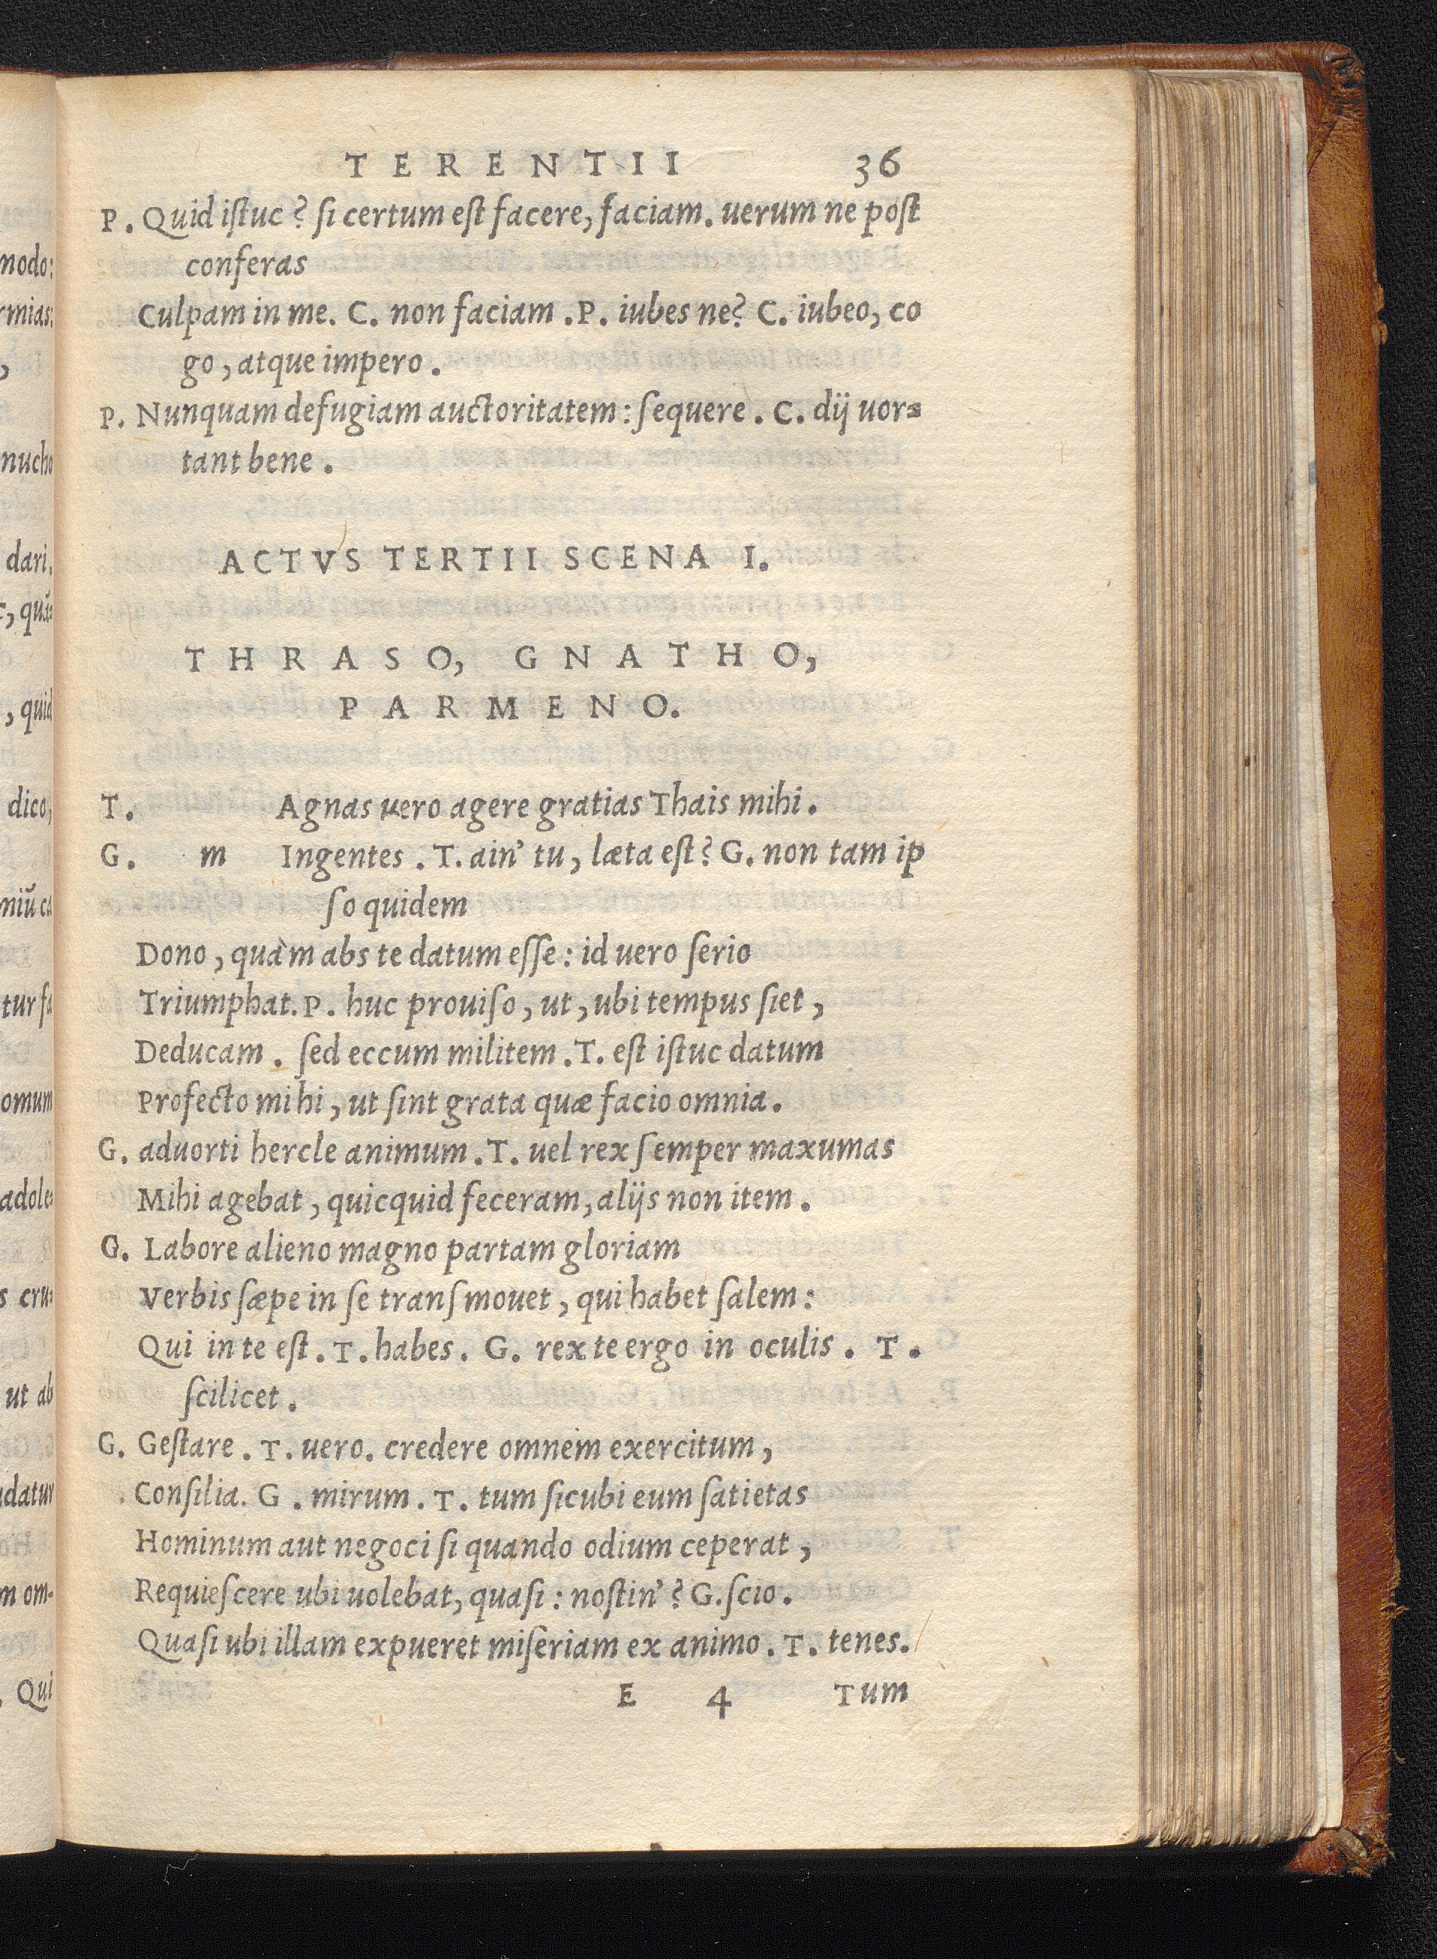 modo:
rmias:
,
nucho
dari.
, quã=
, quid
dico,
niũ ca
tur fa
omum
adole=
s cru=
ut ab
datur
m om-
Qui
TERENTII 36
P. Quid iſtuc? ſi certum eſt facere, faciam. uerum ne poſt
conferas
Culpam in me. C. non faciam. P. iubes ne? C. iubeo, co
go, atque impero.
P. Nunquam defugiam auctoritatem: ſequere. C. dij uor=
tant bene.
ACTVS TERTII SCENA I.
THRASO, GNATHO,
PARMENO.
T. Agnas uero agere gratias Thais mihi.
G. m Ingentes. T. ain' tu, læta eſt? G. non tam ip
ſo quidem
Dono, quàm abs te datum eſſe: id uero ſerio
Triumphat. P. huc prouiſo, ut, ubi tempus ſiet,
Deducam. ſed eccum militem. T. eſt iſtuc datum
Profecto mihi, ut ſint grata quæ facio omnia.
G. aduorti hercle animum. T. uel rex ſemper maxumas
Mihi agebat, quicquid feceram, alijs non item.
G. Labore alieno magno partam gloriam
Verbis ſæpe in ſe tranſmouet, qui habet ſalem:
Qui in te eſt. T. habes. G. rex te ergo in oculis. T.
ſcilicet.
G. Geſtare. T. uero. credere omnem exercitum,
Conſilia. G. mirum. T. tum ſicubi eum ſatietas
Hominum aut negoci ſi quando odium ceperat,
Requieſcere ubi uolebat, quaſi: noſtin'? G. ſcio.
Quaſi ubi illam expueret miſeriam ex animo. T. tenes.
E 4 Tum